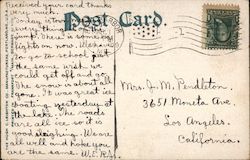 Received your card thanks
very much.
Post Card.
Today is
everything on the
There is some
lights on now. We have
to go to school just
the same. wish we
could get off and go.
The snow is about all
gone. It was great ice
boating yesterday at
the lake. The roads
are all ice so it is
good sleighing. We are
all well and hope you
are the same.
Mrs. J. M. Pendleton.
3651 Moneta Ave.
Los Angeles.
California.